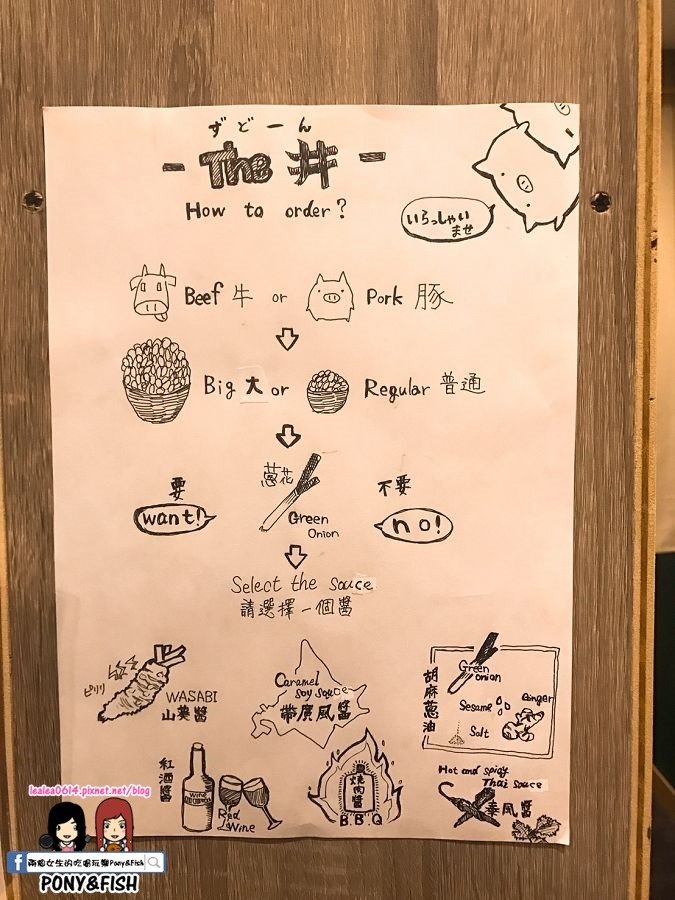 ずどーん
- The 丼 -
How to order?
いらっしゃい
ませ
Beef 牛 or Pork 豚
Big 大 or Regular 普通
要
want!
蔥花
Green
Onion
不要
no!
Select the sauce
請選擇一個醬
ピリリ
WASABI
山葵醬
Caramel
Soy Sauce
帶廣風醬
胡麻蔥油
Green
onion
Sesame
Ginger
Salt
紅酒醬
Wine
Red
Wine
燒肉醬
B.B.Q
Hot and Spicy
Thai Sauce
泰風醬
lealea0614.pixnet.net/blog
兩個女生的吃喝玩樂Pony&Fish
PONY&FISH